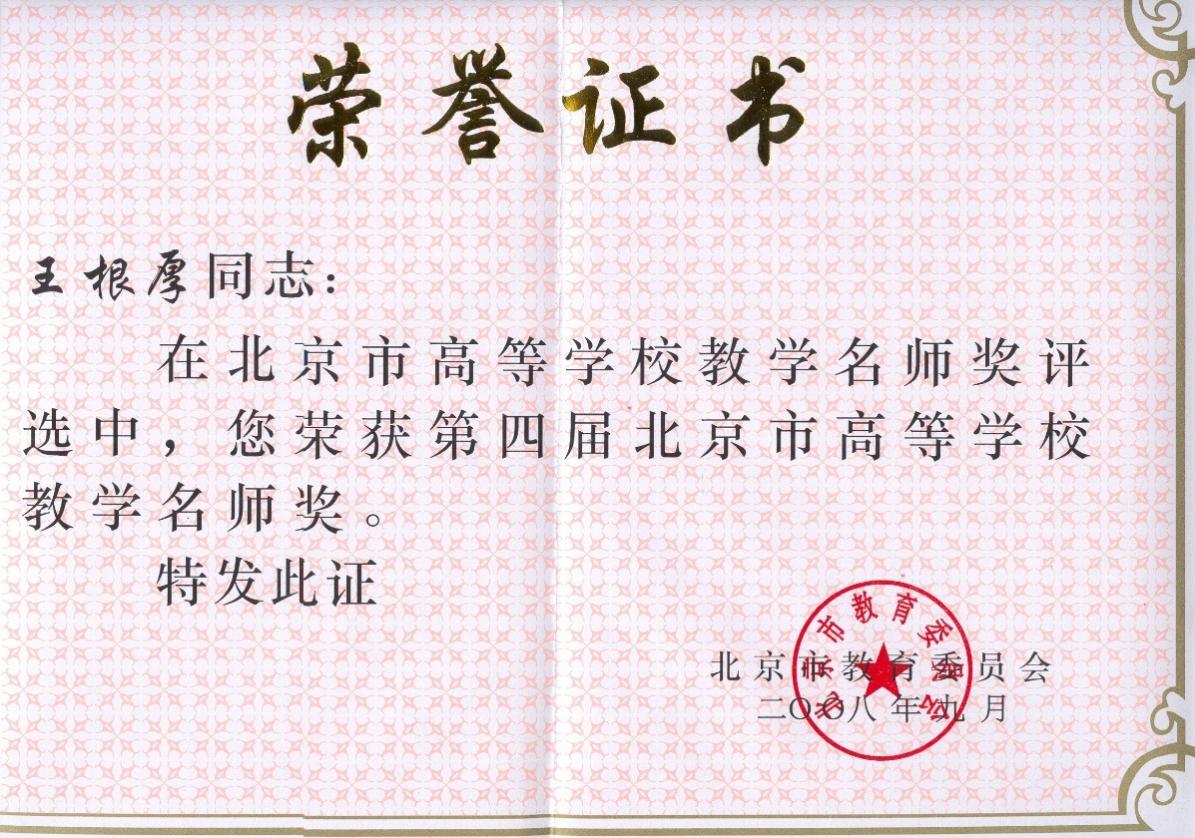 荣誉证书
王根厚同志：
在北京市高等学校教学名师奖评
选中，您荣获第四届北京市高等学校
教学名师奖。
特发此证
北京市教育委员会
二〇〇八年九月
北京市教育委员会